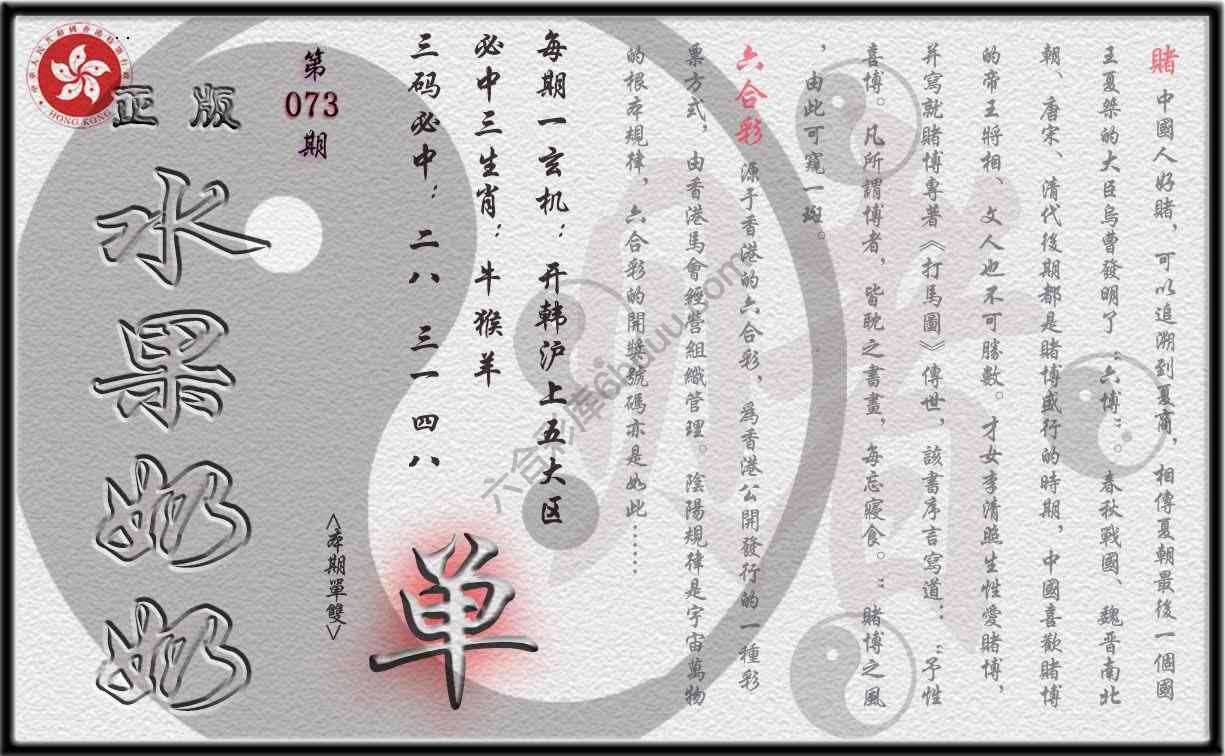 賭 中國人好賭，可以追溯到夏商，相傳夏朝最後一個國
王夏桀的大臣烏曹發明了“六博”。春秋戰國、魏晋南北
朝、唐宋、清代後期都是賭博盛行的時期，中國喜歡賭博
的帝王將相、文人也不可勝數。才女李清照生性愛賭博，
并寫就賭博專著《打馬圖》傳世，該書序言寫道：“予性
喜博。凡所謂博者，皆耽之書畫，每忘寢食。”賭博之風
，由此可窺一斑。
六合彩 源于香港的六合彩，爲香港公開發行的一種彩
票方式，由香港馬會經營組織管理。陰陽規律是宇宙萬物
的根本規律，六合彩的開獎號碼亦是如此……
每期一玄机：开韩沪上五大区
必中三生肖：牛猴羊
三码必中：二八 三一 四八
单
<本期單雙>
第
073
期
正版
水果奶奶
HONG KONG
六合彩库6hduu.com